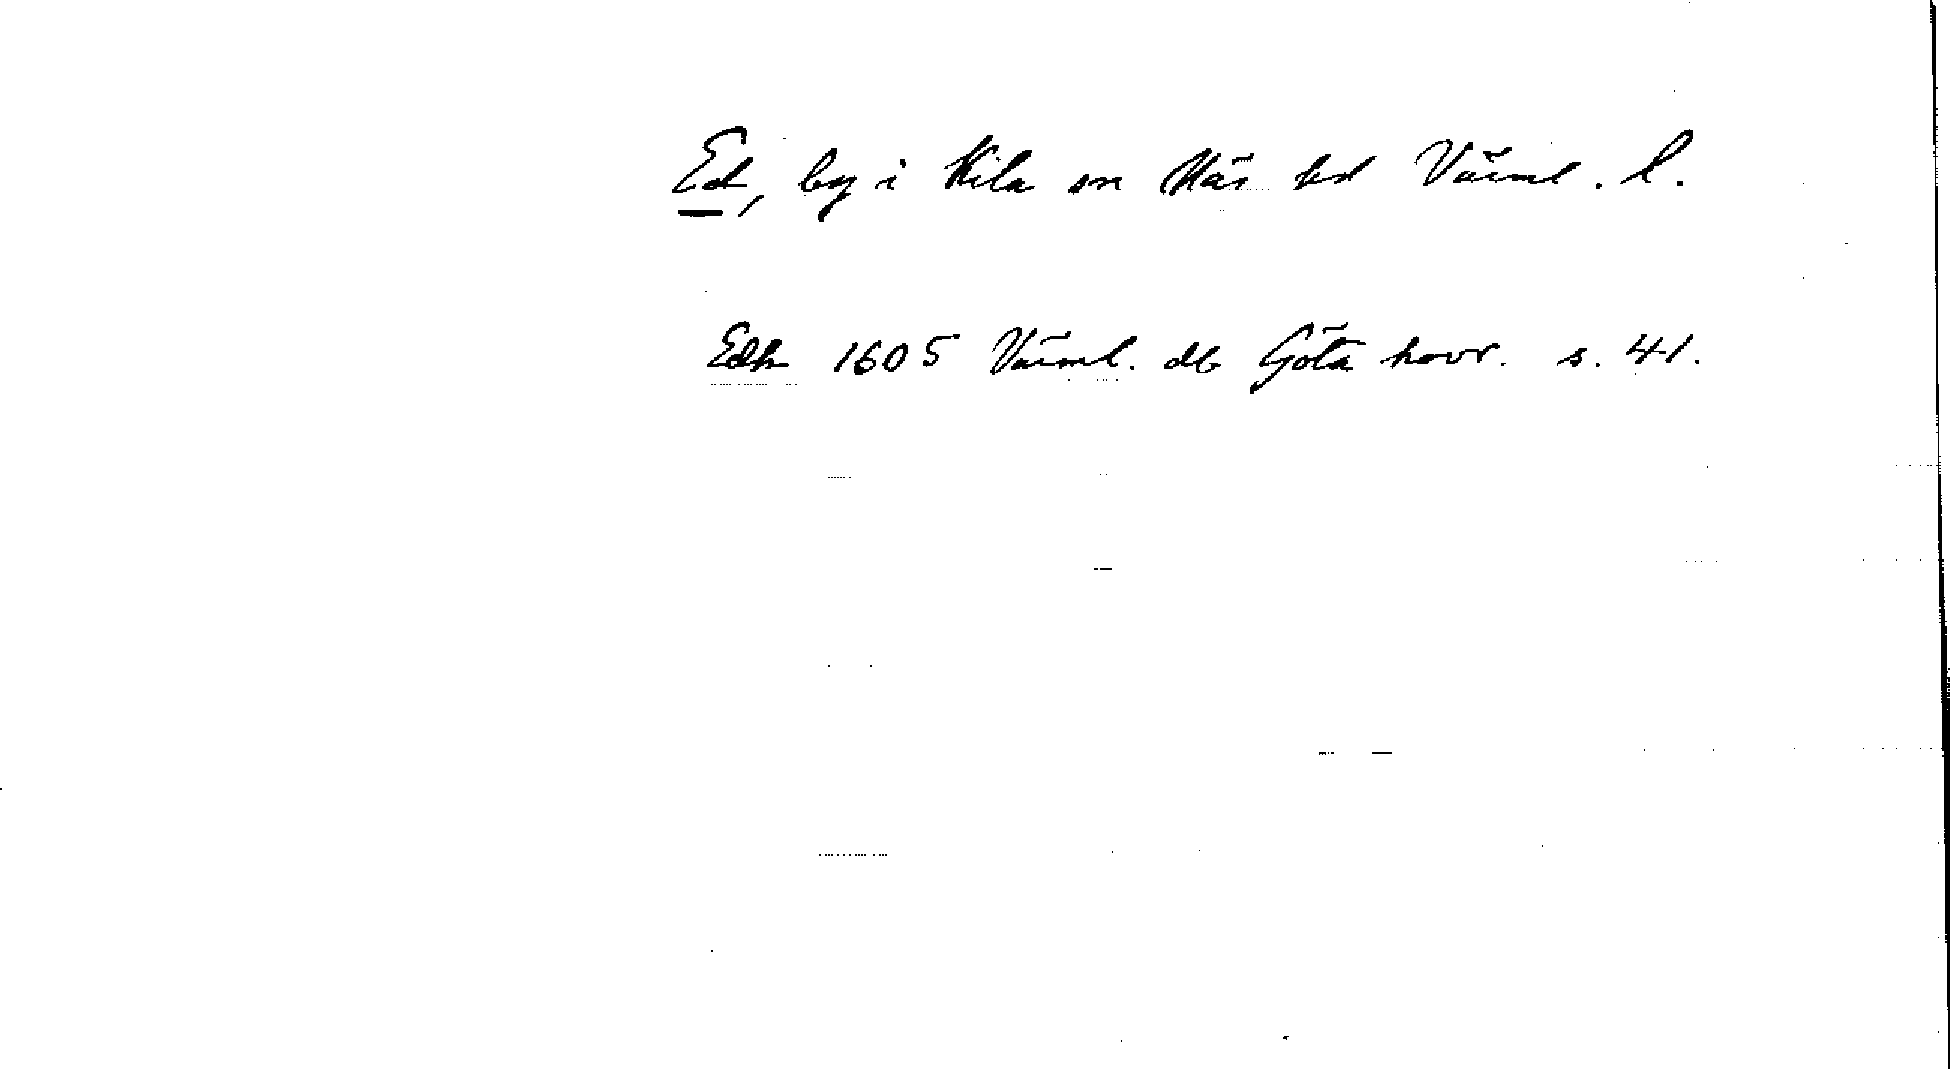 Ed, by i Kila sn Näs hd Värml. l.
Edh 1605 Värml. db Göta hovr. s. 41.